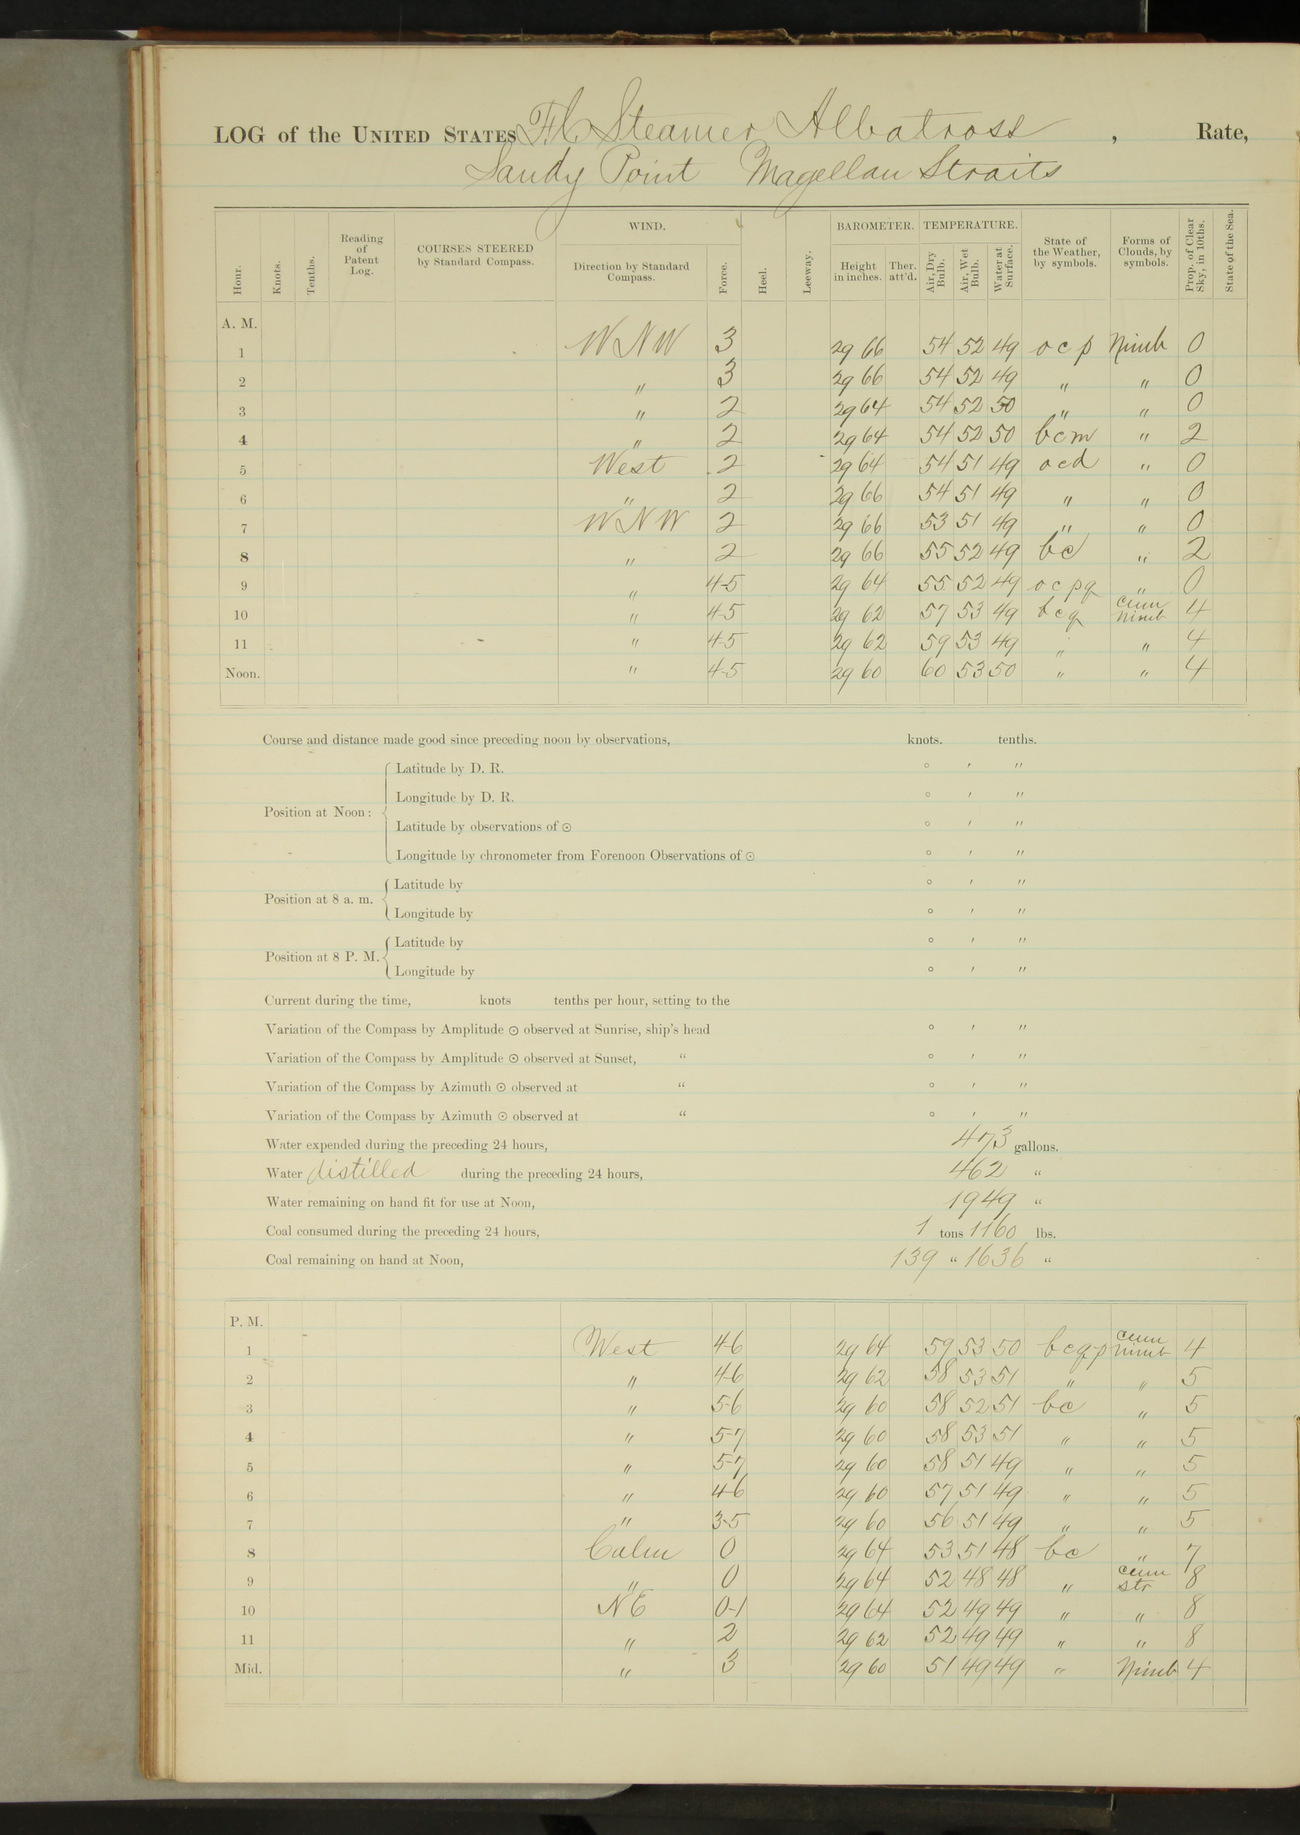 LOG of the UNITED STATES F.C. Steamer Albatross , Rate,
Sandy Point Magellan Straits
Hour. Knots. Tenths. Reading of Patent Log. COURSES STEERED by Standard Compass. WIND. Direction by Standard Compass. Force. Heel. Leeway. BAROMETER. Height in inches. Ther. att'd. TEMPERATURE. Air, Dry Bulb. Air, Wet Bulb. Water at Surface. State of the Weather, by symbols. Forms of Clouds, by symbols. Prop. of Clear Sky, in 10ths. State of the Sea.
A. M.
1 WNW 3 29 66 54 52 49 o c p Nimb 0
2 " 3 29 66 54 52 49 " " 0
3 " 2 29 64 54 52 50 " " 0
4 " 2 29 64 54 52 50 bcm " 2
5 West 2 29 64 54 51 49 ocd " 0
6 " 2 29 66 54 51 49 " " 0
7 WNW 2 29 66 53 51 49 " " 0
8 " 2 29 66 55 52 49 bc " 2
9 " 4-5 29 64 55 52 49 o c p q " 0
10 " 4-5 29 62 57 53 49 bcq cum nimb 4
11 " 4-5 29 62 59 53 49 " " 4
Noon. " 4-5 29 60 60 53 50 " " 4
Course and distance made good since preceding noon by observations, knots. tenths.
Position at Noon: Latitude by D. R. ° ′ ″
Longitude by D. R. ° ′ ″
Latitude by observations of ☉ ° ′ ″
Longitude by chronometer from Forenoon Observations of ☉ ° ′ ″
Position at 8 a. m. Latitude by ° ′ ″
Longitude by ° ′ ″
Position at 8 P. M. Latitude by ° ′ ″
Longitude by ° ′ ″
Current during the time, knots tenths per hour, setting to the
Variation of the Compass by Amplitude ☉ observed at Sunrise, ship's head ° ′ ″
Variation of the Compass by Amplitude ☉ observed at Sunset, " ° ′ ″
Variation of the Compass by Azimuth ☉ observed at " ° ′ ″
Variation of the Compass by Azimuth ☉ observed at " ° ′ ″
Water expended during the preceding 24 hours, 473 gallons.
Water distilled during the preceding 24 hours, 462 "
Water remaining on hand fit for use at Noon, 1949 "
Coal consumed during the preceding 24 hours, 1 tons 1160 lbs.
Coal remaining on hand at Noon, 139 " 1636 "
P. M.
1 West 4-6 29 64 59 53 50 bcqp cum nimb 4
2 " 4-6 29 62 58 53 51 " " 5
3 " 5-6 29 60 58 52 51 bc " 5
4 " 5-7 29 60 58 53 51 " " 5
5 " 5-7 29 60 58 51 49 " " 5
6 " 4-6 29 60 57 51 49 " " 5
7 " 3-5 29 60 56 51 49 " " 5
8 Calm 0 29 64 53 51 48 bc " 7
9 " 0 29 64 52 48 48 " cum str 8
10 NE 0-1 29 64 52 49 49 " " 8
11 " 2 29 62 52 49 49 " " 8
Mid. " 3 29 60 51 49 49 " Nimb 4